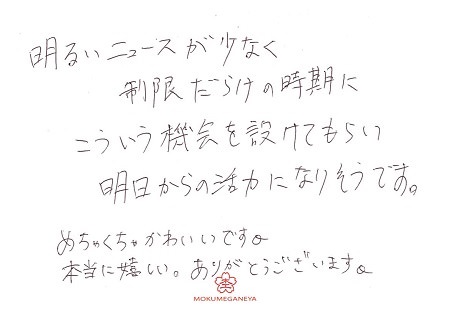 明るいニュースが少なく
制限だらけの時期に
こういう機会を設けてもらい
明日からの活力になりそうです。
めちゃくちゃかわいいです。
本当に嬉しい。ありがとうございます。
MOKUMEGANEYA